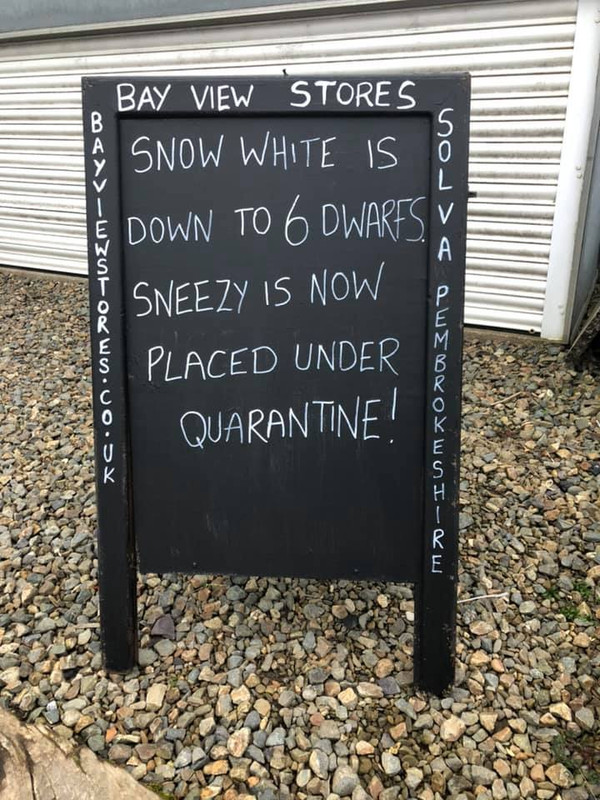 BAY VIEW STORES
BAYVIEWSTORES.CO.UK
SNOW WHITE IS
DOWN TO 6 DWARFS.
SNEEZY IS NOW
PLACED UNDER
QUARANTINE!
SOLVA PEMBROKESHIRE